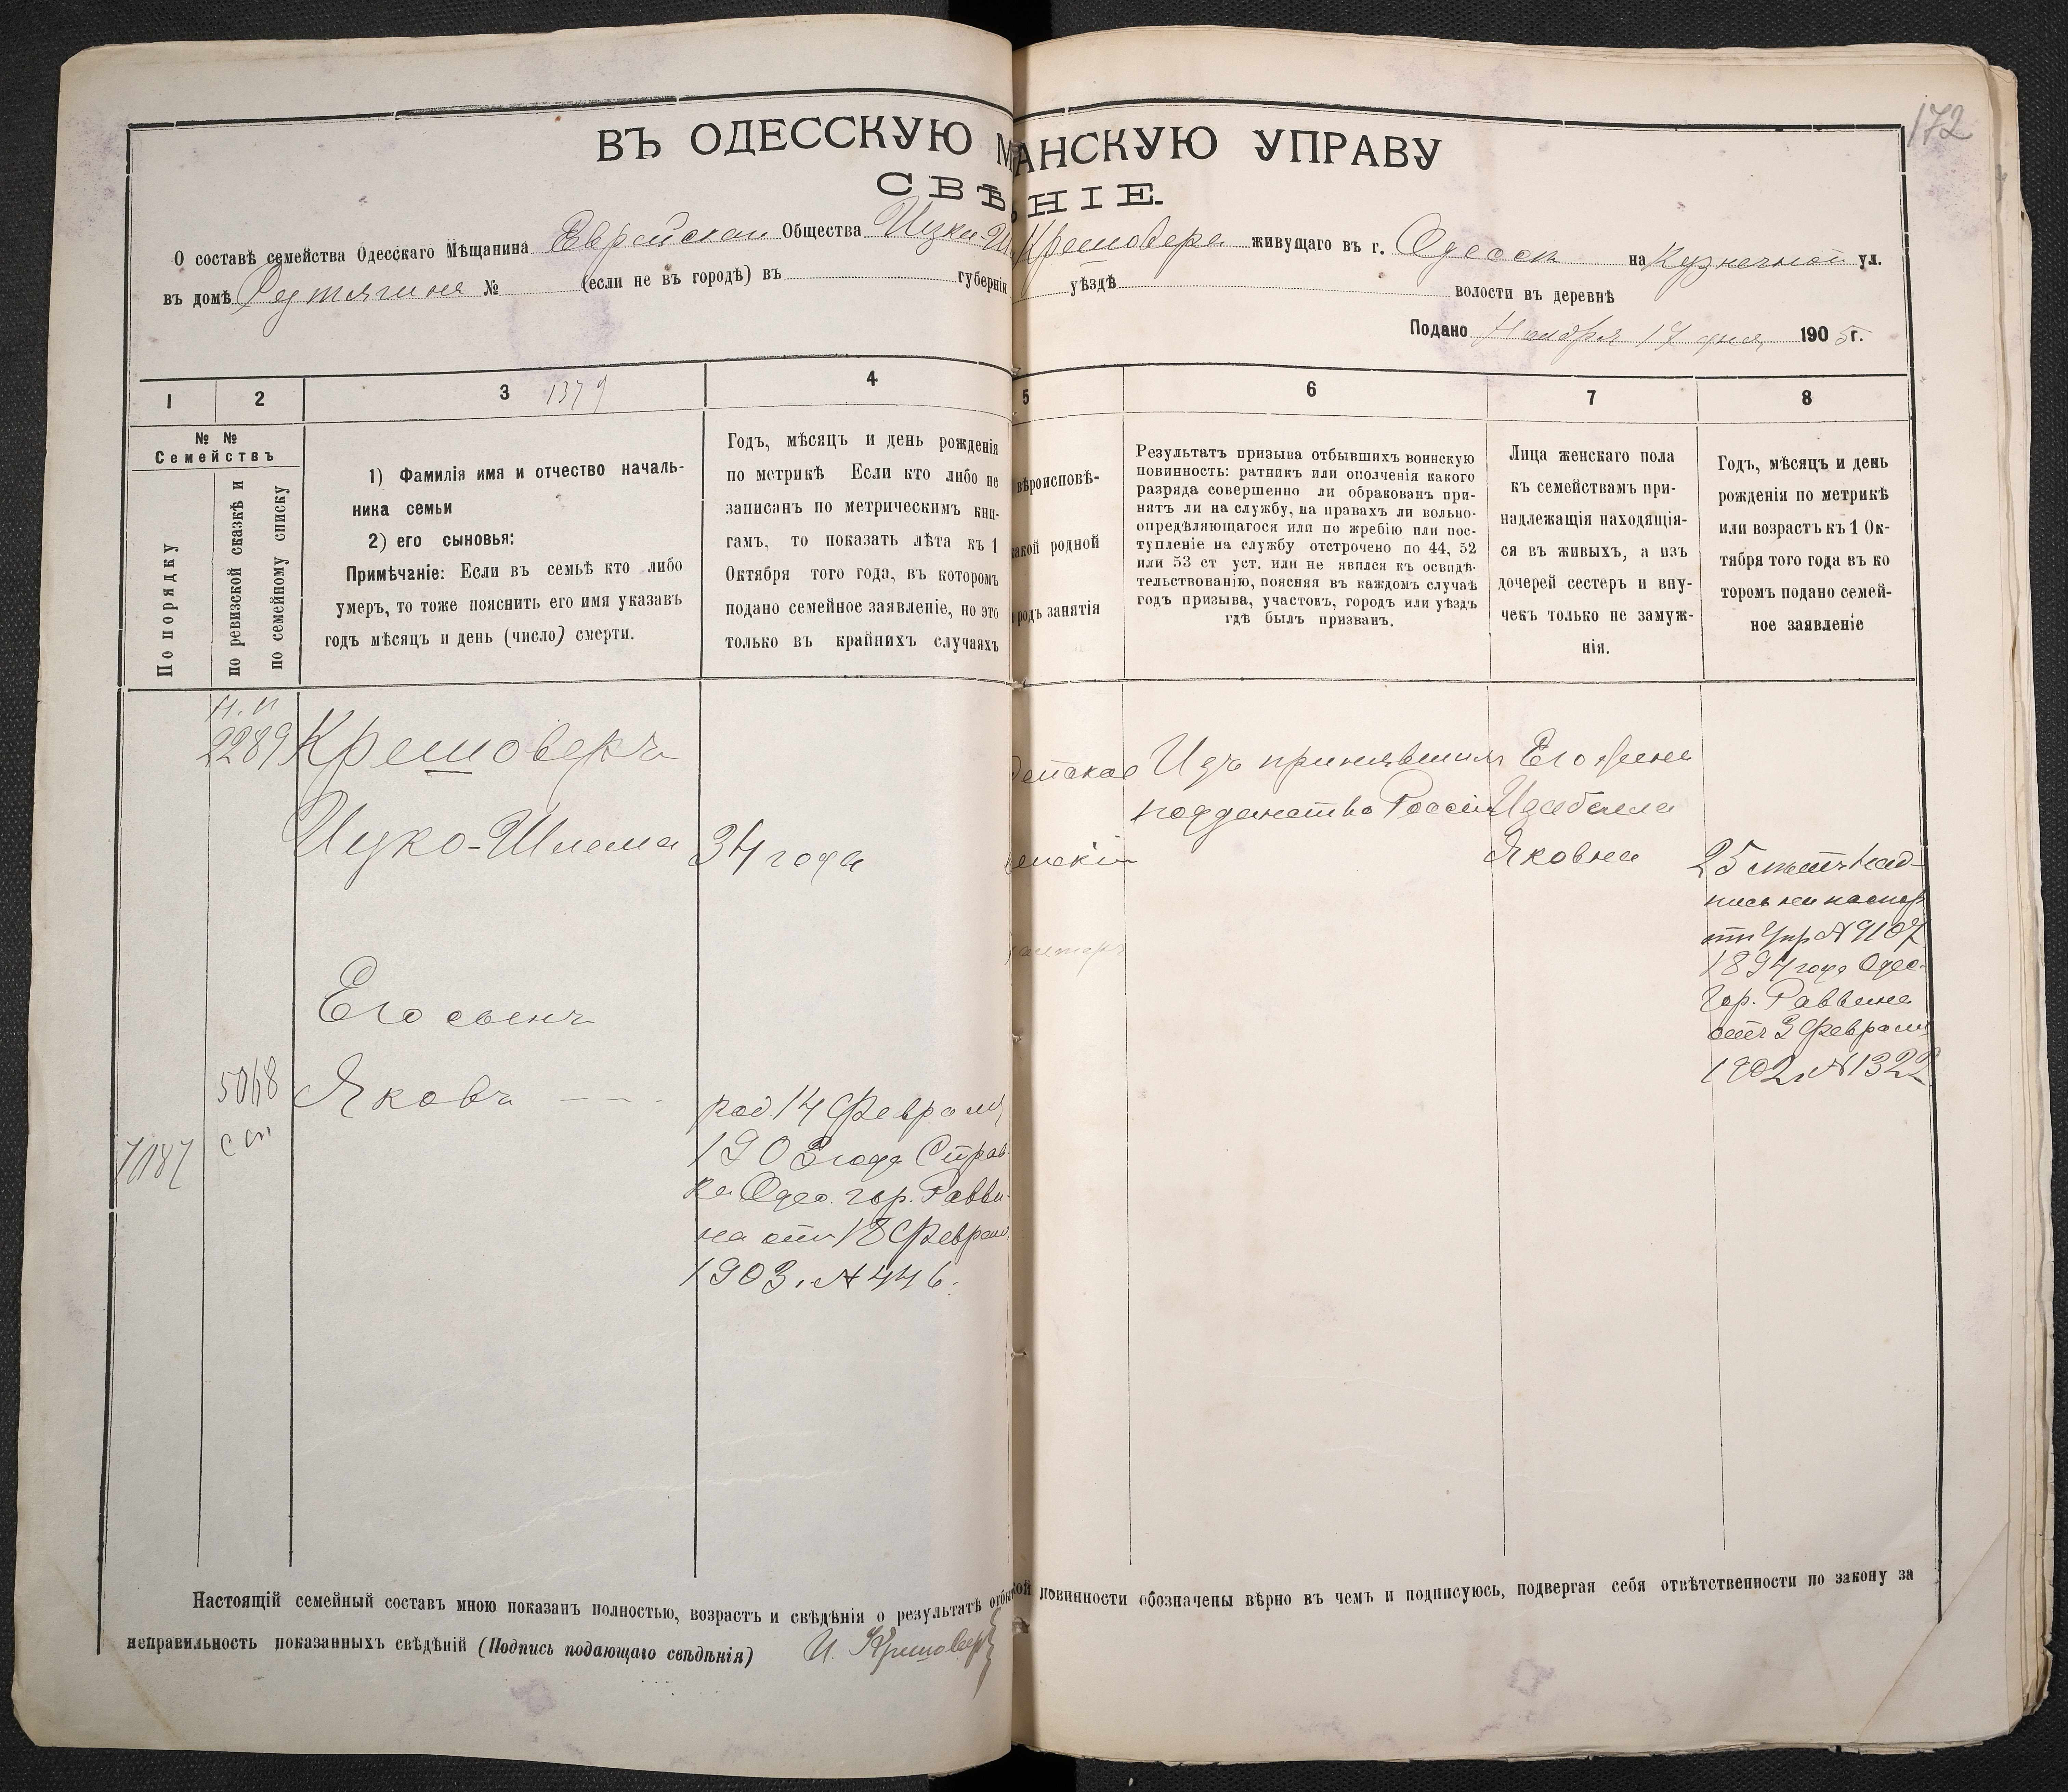 172
ВЪ ОДЕССКУЮ М АНСКУЮ УПРАВУ
СВѢ НІЕ.
О составѣ семейства Одесскаго Мѣщанина Еврейскаго Общества Ицки-Ш Крешовера живущаго въ г. Одессѣ на Кузнечной ул.
въ домѣ Рутягина № (если не въ городѣ) въ губерніи уѣздѣ волости въ деревнѣ
Подано Ноября 17 дня 1905 г.
1 2 3 1379 4 5 6 7 8
№ №
Семействъ
По порядку
по ревизской сказкѣ и
по семейному списку
1) Фамилія имя и отчество началь-
ника семьи
2) его сыновья:
Примѣчаніе: Если въ семьѣ кто либо
умеръ, то тоже пояснить его имя указавъ
годъ мѣсяцъ и день (число) смерти.
Годъ, мѣсяцъ и день рожденія
по метрикѣ Если кто либо не
записанъ по метрическимъ кни-
гамъ, то показать лѣта къ 1
Октября того года, въ которомъ
подано семейное заявленіе, но это
только въ крайнихъ случаяхъ
вѣроисповѣ-
какой родной
родъ занятія
Результатъ призыва отбывшихъ воинскую
повинность: ратникъ или ополченія какого
разряда совершенно ли обракованъ при-
нятъ ли на службу, на правахъ ли вольно-
опредѣляющагося или по жребію или пос-
тупленіе на службу отстрочено по 44, 52
или 53 ст уст. или не явился къ освидѣ-
тельствованію, поясняя въ каждомъ случаѣ
годъ призыва, участокъ, городъ или уѣздъ
гдѣ былъ призванъ.
Лица женскаго пола
къ семействамъ при-
надлежащія находящія-
ся въ живыхъ, а изъ
дочерей сестеръ и вну-
чекъ только не замуж-
нія.
Годъ, мѣсяцъ и день
рожденія по метрикѣ
или возрастъ къ 1 Ок-
тября того года въ ко
торомъ подано семей-
ное заявленіе
2289
Крешоверъ
Ицко-Шлема
34 года
Его сынъ
5068
Яковъ — — .
род. 14 Февраля
1903 года Справ-
ка Одес. гор. Равви-
на отъ 18 Февраля
1903. № 446.
Изъ принявшихъ
подданство Россіи
Его жена
Изабелла
Яковна
25 лѣтъ Над-
пись на паспор
отъ Упр № 9107
1894 года Одес.
Гор. Раввина
отъ 3 Февраля
1902 г. № 1322
Настоящій семейный составъ мною показанъ полностью, возрастъ и свѣдѣнія о результатѣ отбы кой повинности обозначены вѣрно въ чемъ и подписуюсь, подвергая себя отвѣтственности по закону за
неправильность показанныхъ свѣдѣній (Подпись подающаго свѣдѣнія) И. Крешоверъ